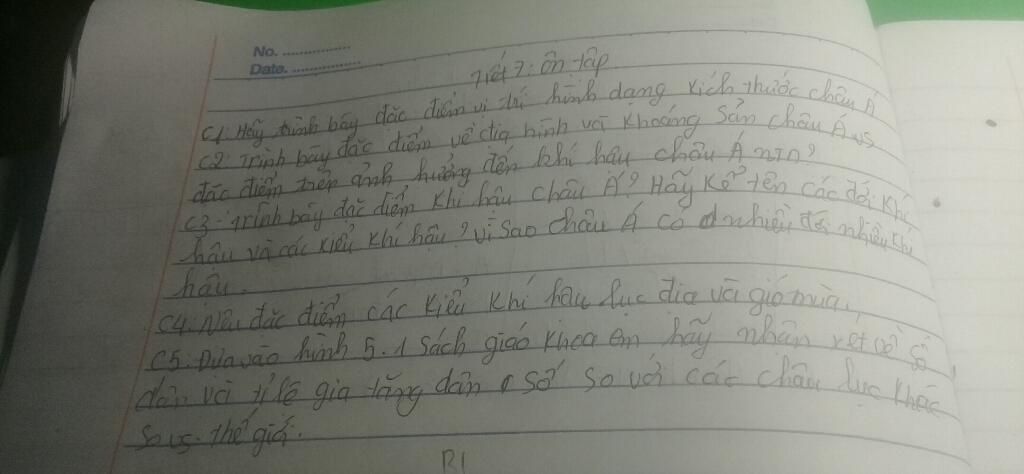 No. ...............
Date. ...............
Tiết 7: ôn tập
C1. Hãy trình bày đặc điểm vị trí hình dạng kích thước châu Á
C2. Trình bày đặc điểm về địa hình và khoáng sản châu Á vs
đặc điểm trên ảnh hưởng đến khí hậu châu Á ntn?
C3. Trình bày đặc điểm khí hậu châu Á? Hãy kể tên các đới khí
hậu và các kiểu khí hậu? vì sao châu Á có nhiều đới nhiều khí
hậu.
C4. Nêu đặc điểm các kiểu khí hậu lục địa và gió mùa.
C5. Dựa vào hình 5.1 sách giáo khoa em hãy nhận xét về số
dân và tỉ lệ gia tăng dân số so với các châu lục khác
so vs thế giới.